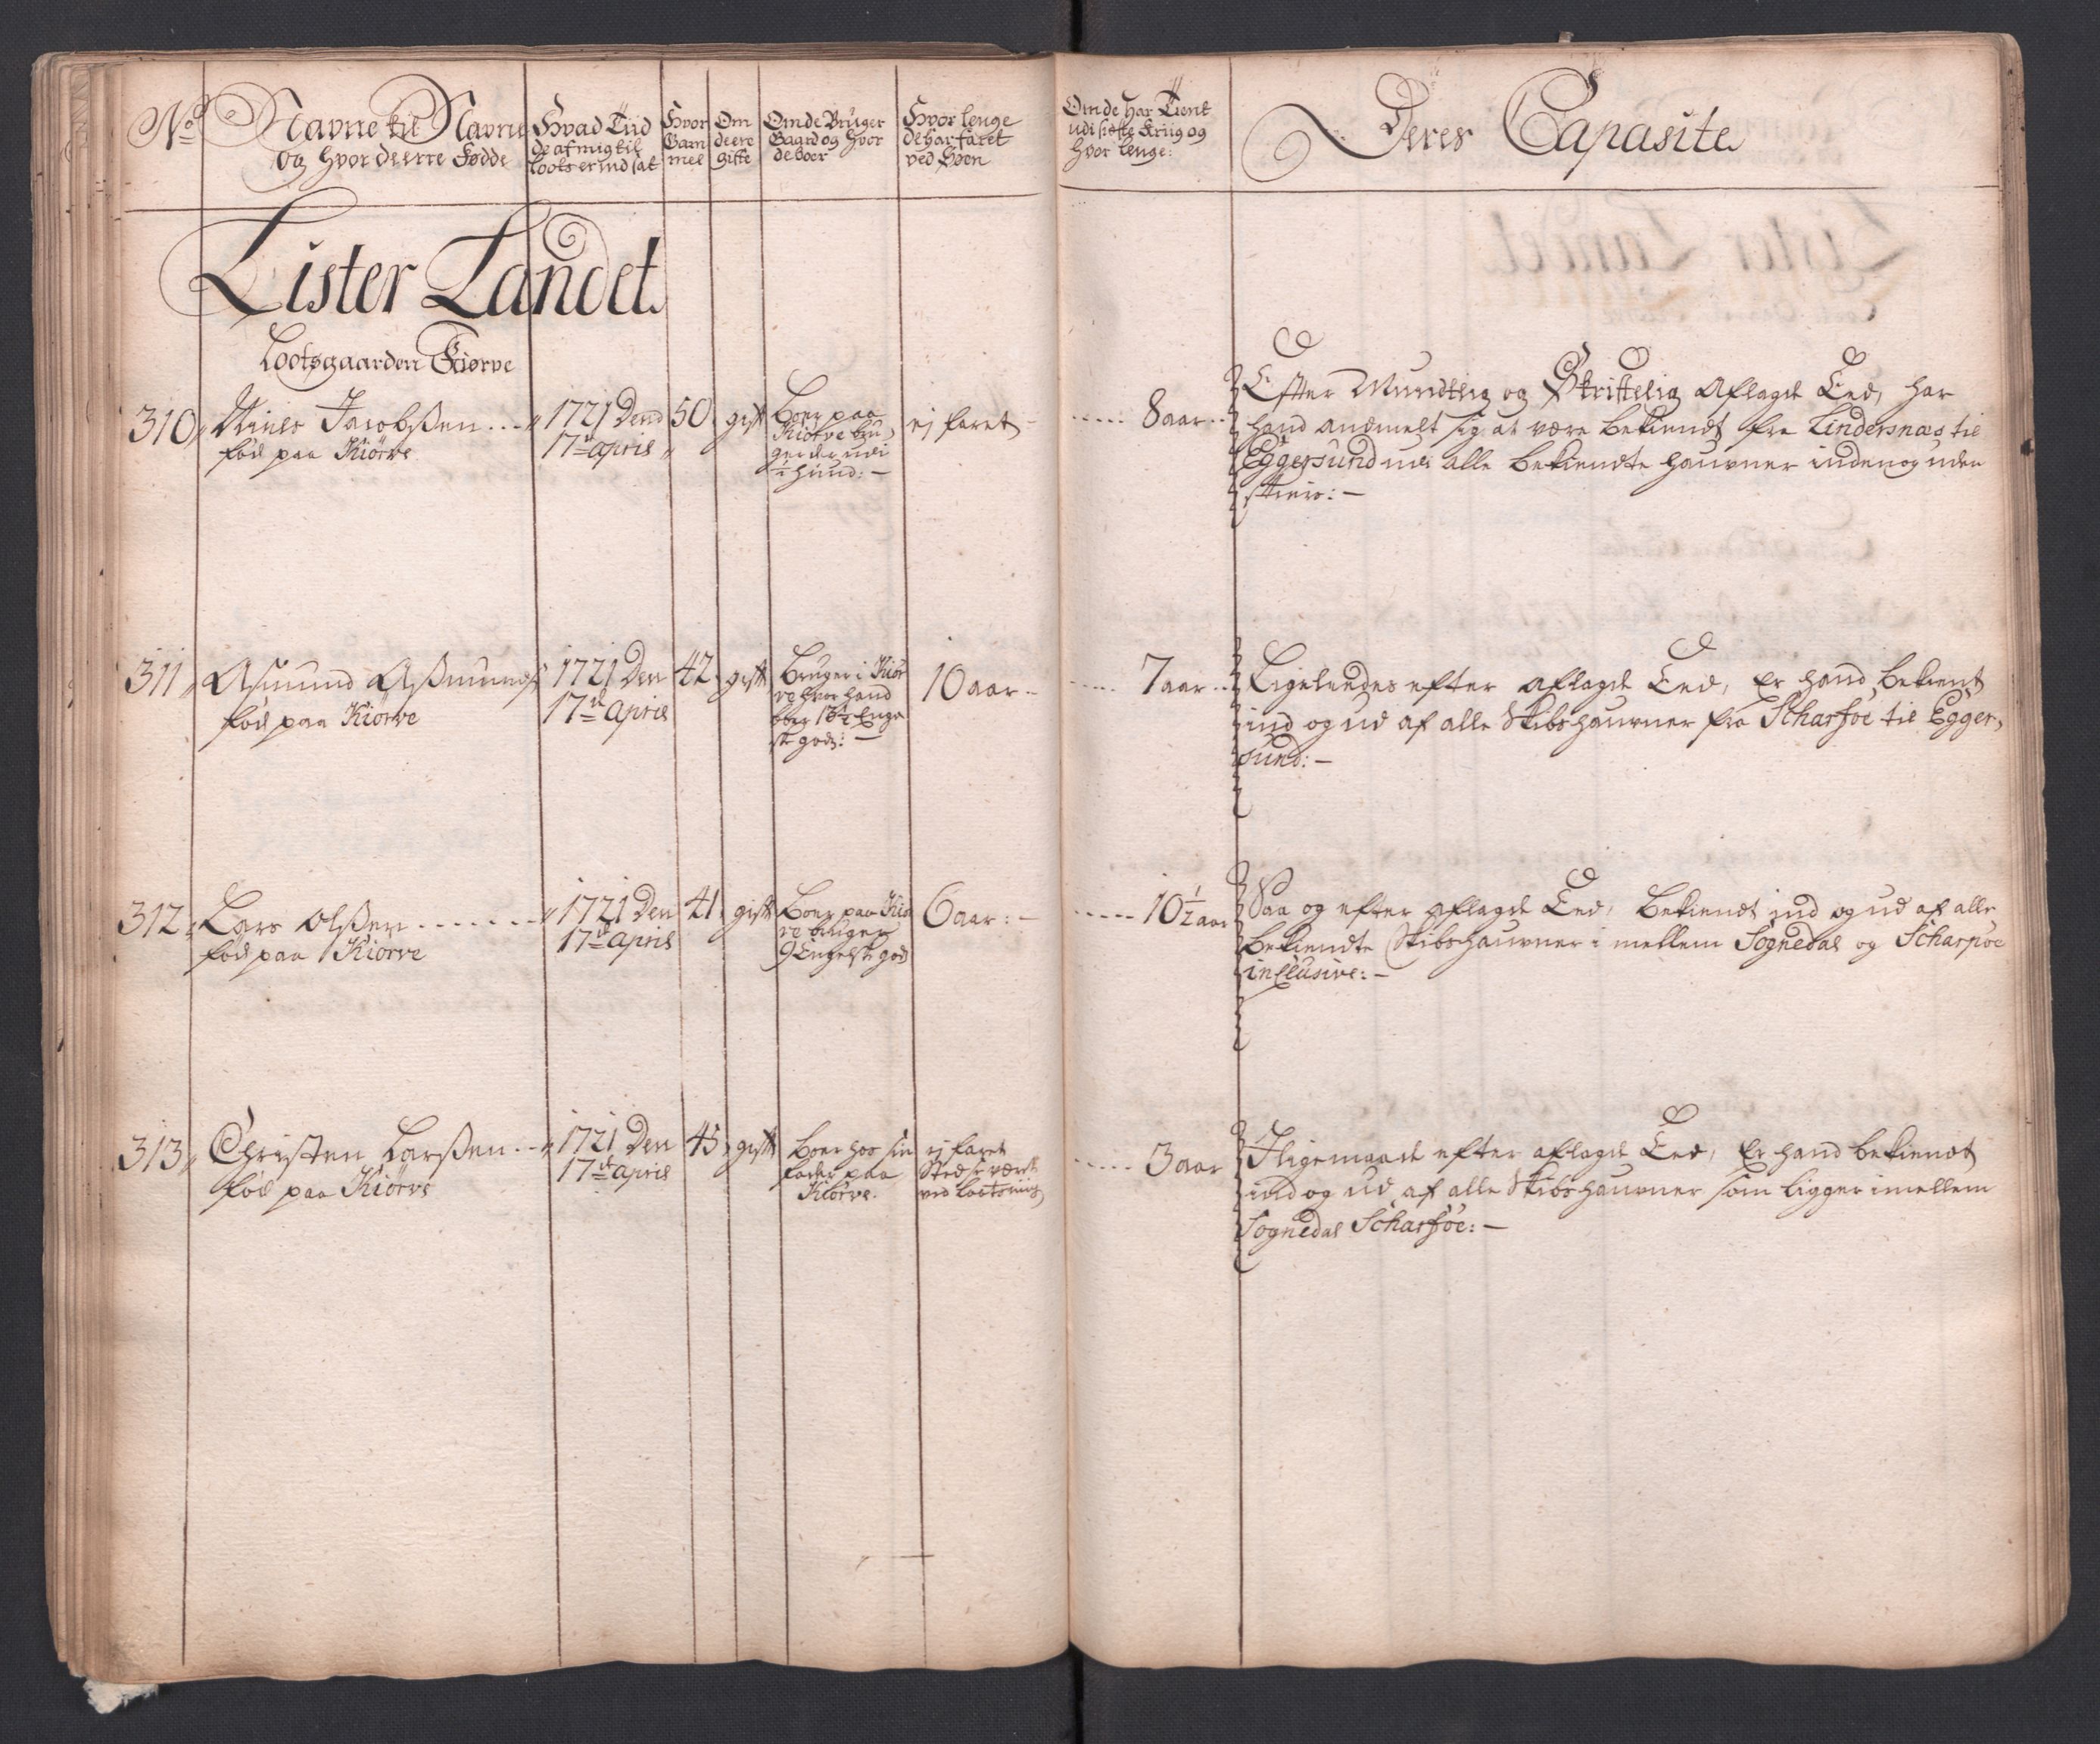 No
Navne til Navne
og hvor de erre Fødde
Hvad Tiid
de af mig til
Loots er ind sat
Hvor
Gam
mel
Om
deere
gifte
Om de Bruger
Gaard og hvor
de boer
Hvor lenge
de har faret
ved Søen
Om de har Tient
udi siste Kriig og
hvor lenge:
Deres Capasite
Lister Landet
Lootsgaarden Kiørve
310, Niels Jacobsen...
fød paa Kiörve
1721 Dend
17de april
50
gift
Boer paa
Kiörve bru-
ger der udi
½ hund:
ej faret
8 aar
Efter Mundtlig og Skriftelig Aflagde Eed, har
hand andmelt sig at være bekiendt fra Lindersnæs til
Eggersund udi alle bekiendte haufner inden og uden
skiers:
311, Asmund Aßmunds
fød paa Kiörve
1721 Den
17de april
42
gift
Bruger i Kiör
ve hvor hand
boer 16½ Enge
ske gods:
10 aar
7 aar
Ligeledes efter aflagde Eed, er hand bekient
ind og ud af alle Skibshaufner fra Scharföe til Egger-
sund:
312, Lars Olßen
fød paa Kiörve
1721 Den
17de april
41
gift
Boer paa Kiö
ve bruger
9 Engelsk gods
6 aar:
10½ aar
Saa og efter aflagde Eed, bekiendt ind og ud af alle
bekiendte Skibshaufner i mellem Sognedal og Scharpöe
inclusive:
313, Christen Larßen
fød paa Kiörve
1721 Den
17de april
45
gift
Boer hos sin
fader paa
Kiörve.
ej faret
Stedse værit
ved Lootsning
3 aar
Iligemaade efter aflagde Eed, er hand bekiendt
ind og ud af alle Skibshaufner som ligger imellem
Sognedal Scharföe: